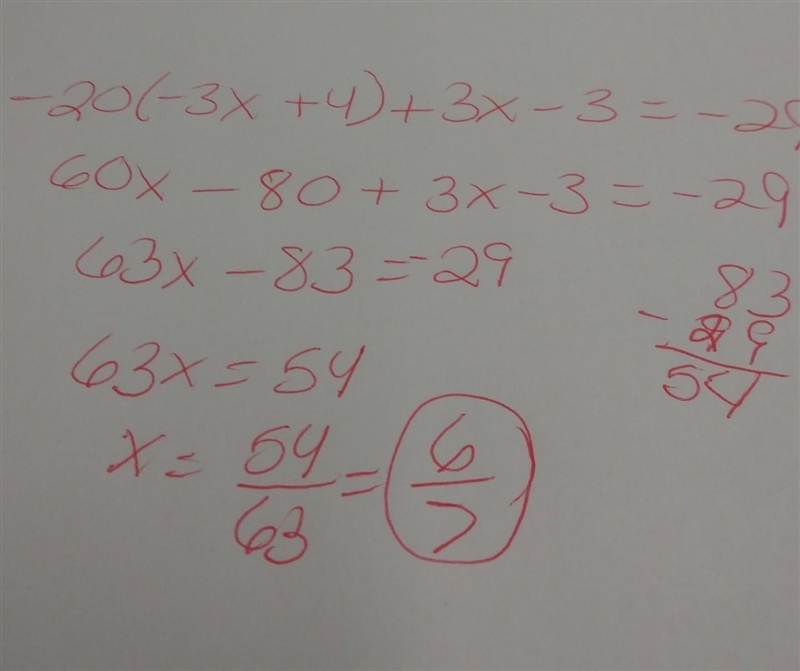 -20(-3x + 4) + 3x - 3 = -29
60x - 80 + 3x - 3 = -29
63x - 83 = -29
83
- 29
54
63x = 54
x = 54/63 = 6/7